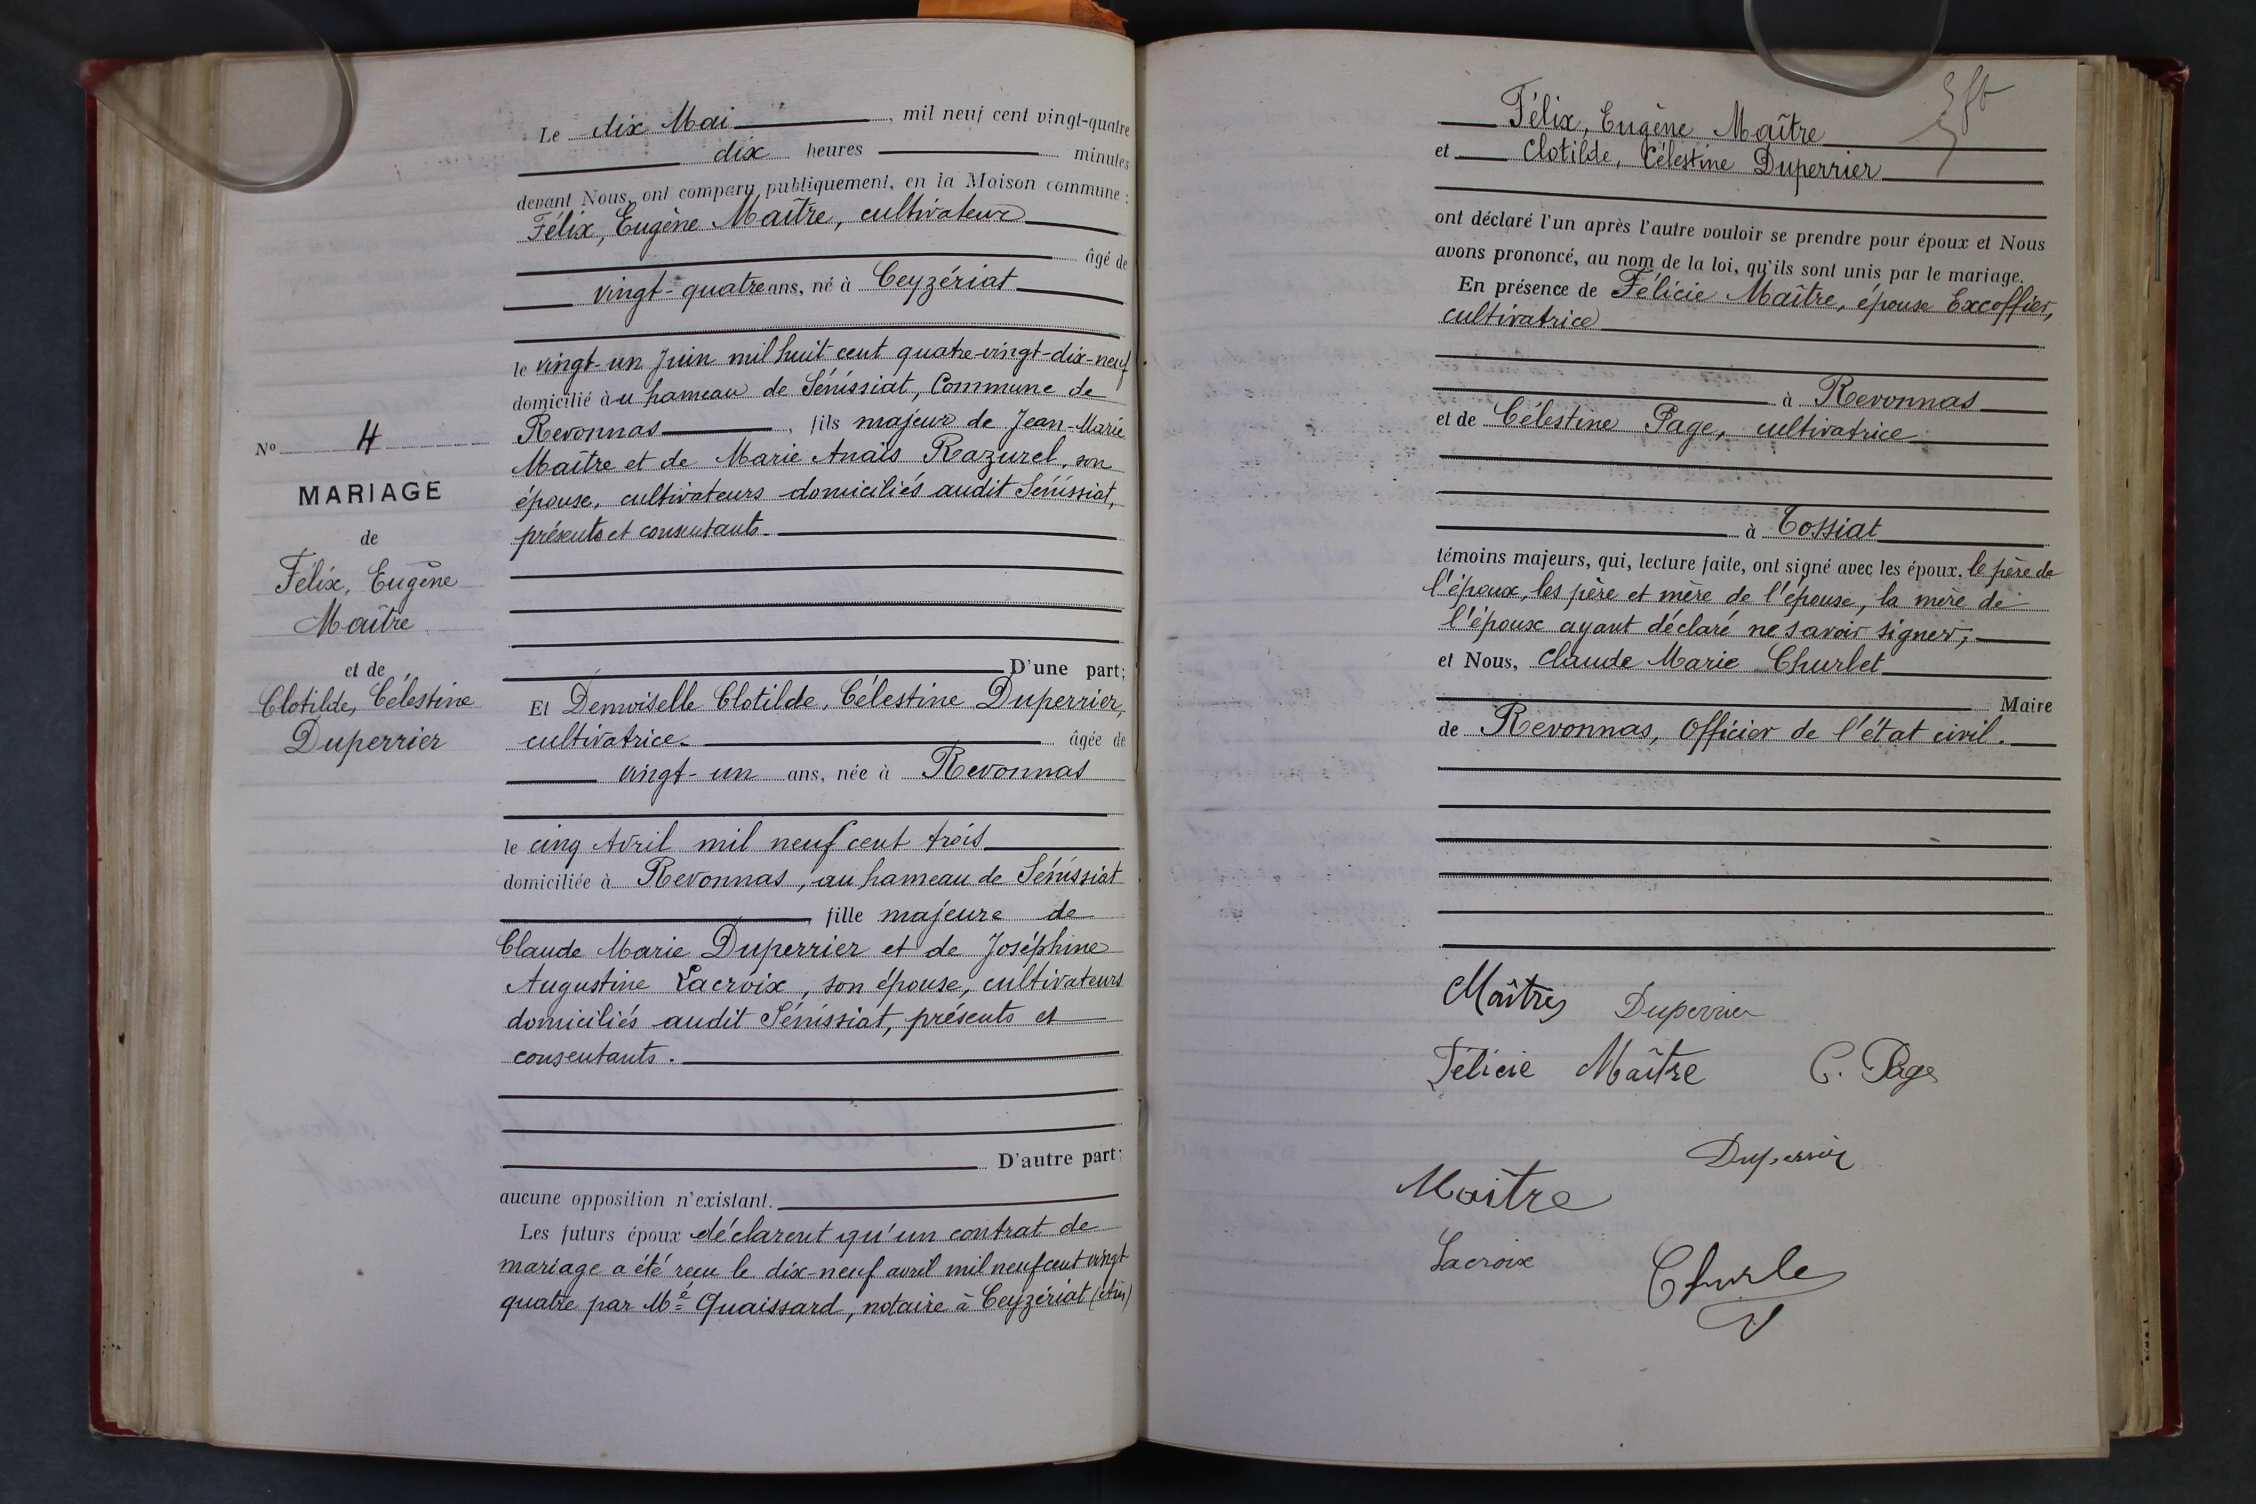 Le dix Mai, mil neuf cent vingt-quatre
dix heures minutes
devant Nous, ont comparu publiquement, en la Maison commune :
Félix, Eugène Maître, cultivateur
âgé de
vingt-quatre ans, né à Ceyzériat
le vingt-un Juin mil huit cent quatre-vingt-dix-neuf
domicilié à u hameau de Sénissiat, Commune de
Revonnas, fils majeur de Jean-Marie
Maître et de Marie Anaïs Razurel, son
épouse, cultivateurs domiciliés audit Sénissiat,
présents et consentants.
D'une part;
Et Demoiselle Clotilde, Célestine Duperrier,
cultivatrice. âgée de
vingt-un ans, née à Revonnas
le cinq Avril mil neuf cent trois
domiciliée à Revonnas, au hameau de Sénissiat
, fille majeure de
Claude Marie Duperrier et de Joséphine
Augustine Lacroix, son épouse, cultivateurs
domiciliés audit Sénissiat, présents et
consentants.
D'autre part;
aucune opposition n'existant.
Les futurs époux déclarent qu'un contrat de
mariage a été reçu le dix-neuf avril mil neuf cent vingt
quatre par Mé Quaissard, notaire à Ceyzériat (Ain)
No 4
MARIAGE
de
Félix, Eugène
Maître
et de
Clotilde, Célestine
Duperrier
Félix, Eugène Maître
et Clotilde, Célestine Duperrier
ont déclaré l'un après l'autre vouloir se prendre pour époux et Nous
avons prononcé, au nom de la loi, qu'ils sont unis par le mariage.
En présence de Félicie Maître, épouse Excoffier,
cultivatrice
à Revonnas
et de Célestine Page, cultivatrice
à Tossiat
témoins majeurs, qui, lecture faite, ont signé avec les époux, le père de
l'époux, les père et mère de l'épouse, la mère de
l'époux ayant déclaré ne savoir signer,
et Nous, Claude Marie Churlet
Maire
de Revonnas, Officier de l'état civil.
Maître Duperrier
Félicie Maître C. Page
Duperrier
Maître
Lacroix
Churle